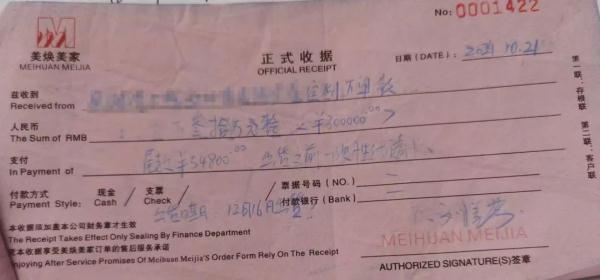 No: 0001422
美焕美家
MEIHUAN MEIJIA
正式收据
OFFICIAL RECEIPT
日期(DATE): 2021.10.21
兹收到
Received from 定制
人民币
The Sum of RMB 叁拾万元整 <¥300000.00>
支付
In Payment of 尾款¥54800.00 出货之前一次性付清
付款方式 现金 支票 票据号码(NO.)
Payment Style: Cash / Check / 付款银行(Bank)
出货日期: 12月16日出货
本收据须加盖本公司财务章才生效
The Receipt Takes Effect Only Sealing By Finance Department
本收据享受美焕美家订单的售后服务承诺
Enjoying After Service Promises Of Meihuan Meijia's Order Form Rely On The Receipt
MEIHUAN MEIJIA
AUTHORIZED SIGNATURE(S)签章
第一联:存根联
第二联:客户联